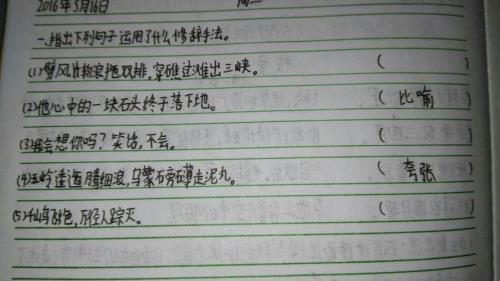 2016年3月16日 周二
一、指出下列句子运用了什么修辞手法。
(1)劈风斩浪拖双排,穿礁过滩出三峡。 (
(2)他心中的一块石头终于落下地。 ( 比喻
(3)我会想你吗?笑话,不会。 (
(4)五岭逶迤腾细浪,乌蒙磅礴走泥丸。 ( 夸张
(5)千山鸟飞绝,万径人踪灭。 (